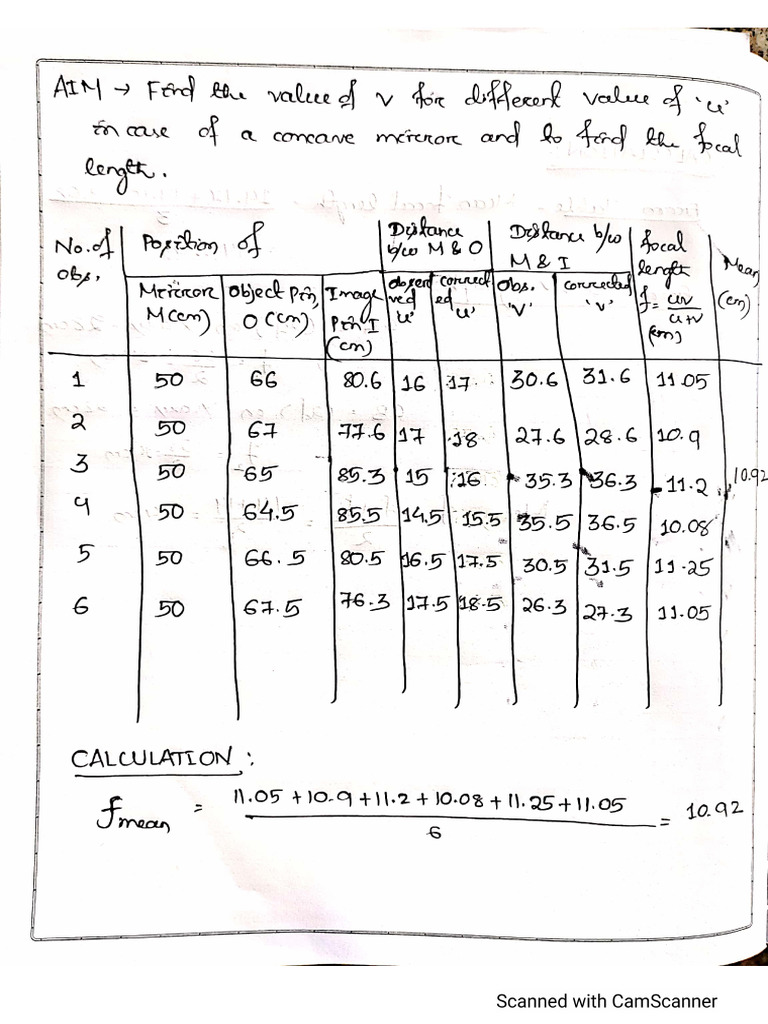 AIM → Find the value of v for different value of 'u'
in case of a concave mirror and to find the focal
length.
No. of obs. | Position of | Distance b/w M & O | Distance b/w M & I | focal length f = uv/u+v (cm) | Mean (cm)
Mirror M (cm) | Object Pin, O (cm) | Image Pin I (cm) | observed 'u' | corrected 'u' | Obs. 'v' | corrected 'v'
1 50 66 80.6 16 17 30.6 31.6 11.05
2 50 67 77.6 17 18 27.6 28.6 10.9
3 50 65 85.3 15 16 35.3 36.3 11.2 10.92
4 50 64.5 85.5 14.5 15.5 35.5 36.5 10.08
5 50 66.5 80.5 16.5 17.5 30.5 31.5 11.25
6 50 67.5 76.3 17.5 18.5 26.3 27.3 11.05
CALCULATION :
fmean = 11.05 + 10.9 + 11.2 + 10.08 + 11.25 + 11.05 / 6 = 10.92
Scanned with CamScanner